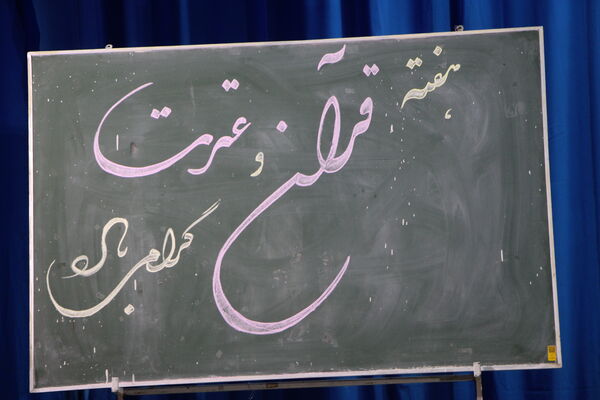 هفته قرآن و عترت
گرامی باد